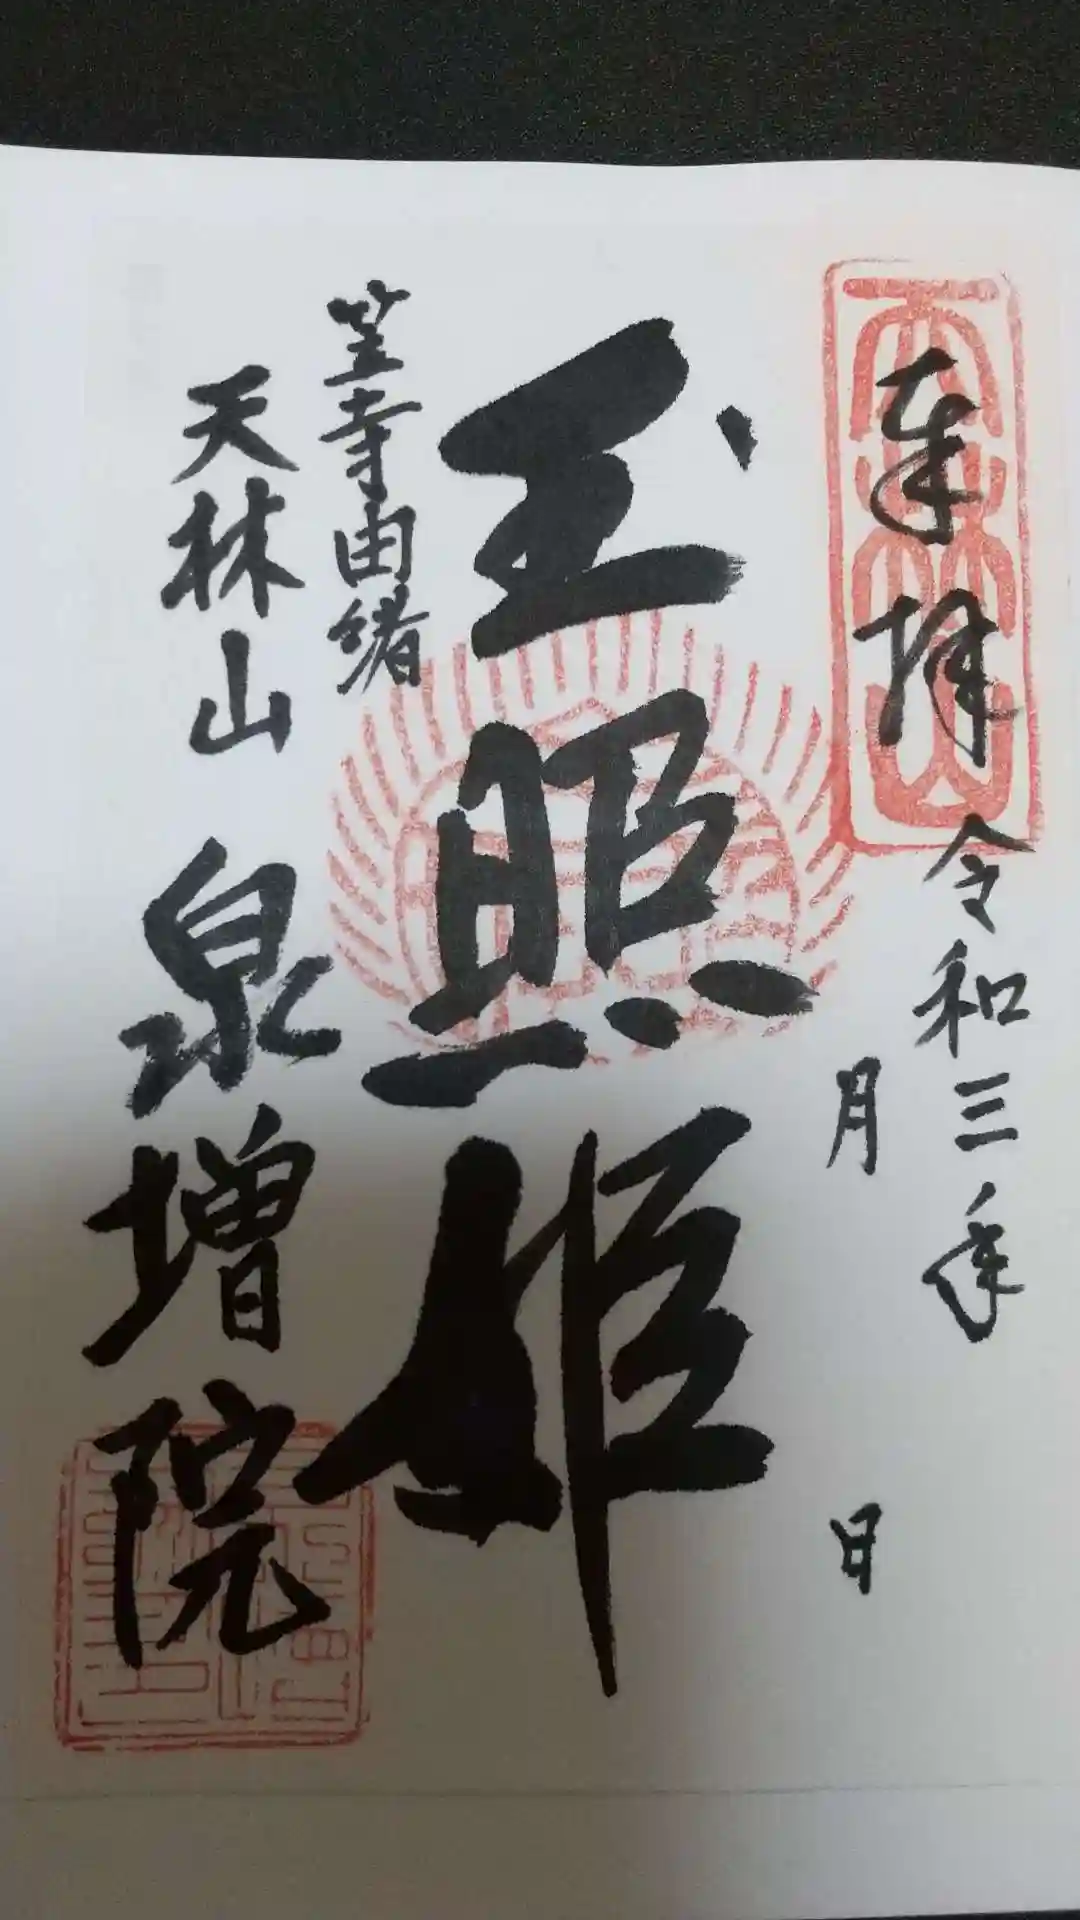 奉拝
令和三年
月　日
玉照姫
笠寺由緒
天林山　泉増院
天林山